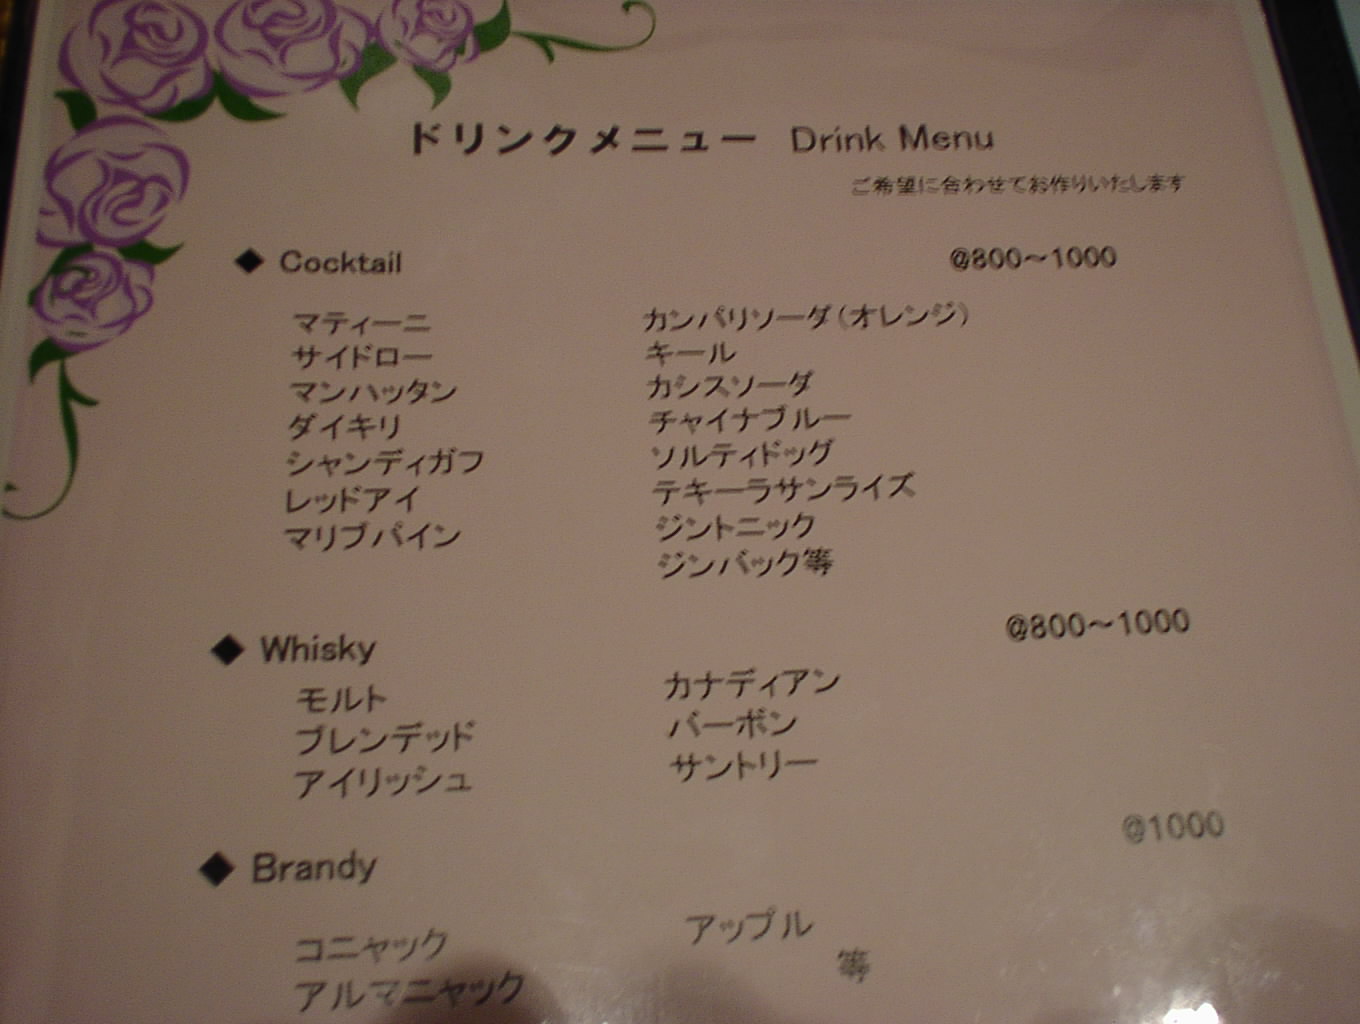 ドリンクメニュー Drink Menu
ご希望に合わせてお作りいたします
◆ Cocktail @800～1000
マティーニ カンパリソーダ(オレンジ)
サイドロー キール
マンハッタン カシスソーダ
ダイキリ チャイナブルー
シャンディガフ ソルティドッグ
レッドアイ テキーラサンライズ
マリブパイン ジントニック
ジンバック等
◆ Whisky @800～1000
モルト カナディアン
ブレンデッド バーボン
アイリッシュ サントリー
◆ Brandy @1000
コニャック アップル
アルマニャック 等